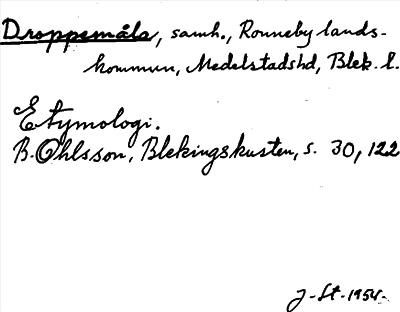 Droppemåla, samh., Ronneby lands-
kommun, Medelstadshd, Blek. l.
Etymologi.
B. Ohlsson, Blekingskusten, s. 30, 122
J-St-1954-